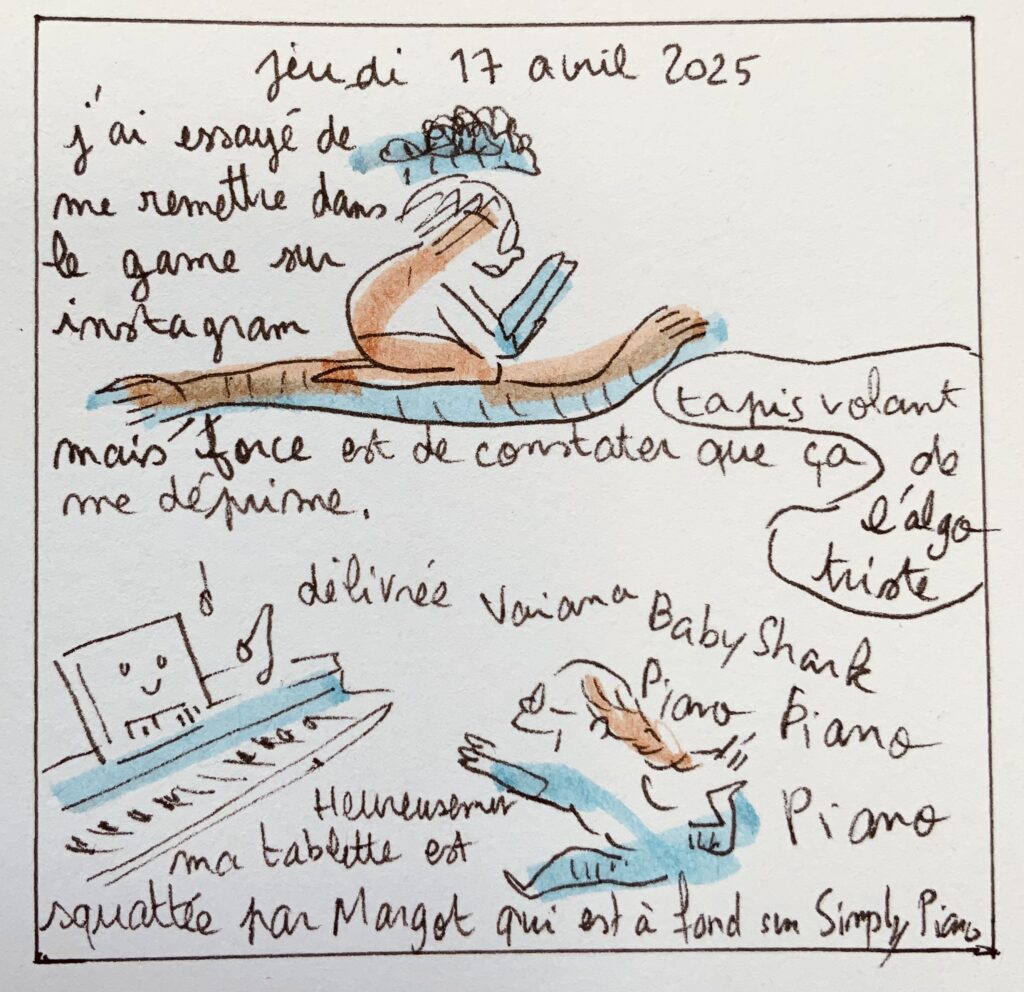 jeudi 17 avril 2025
j'ai essayé de
me remettre dans
le game sur
instagram
tapis volant
de
l'algo
triste
mais force est de constater que ça
me déprime.
délivrée Vaiana Baby Shark
Piano Piano
Piano
Heureusement
ma tablette est
squattée par Margot qui est à fond sur Simply Piano